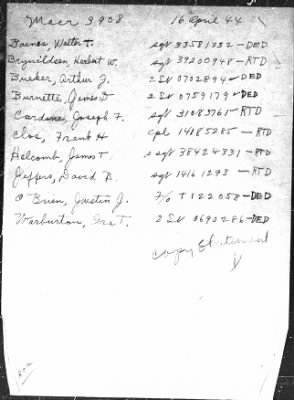 Macr 3908 16 April 44
Baines, Walter T. sgt 33581332 - DED
Brynildsen, Herbert W. sgt 39200948 - RTD
Busker, Arthur J. 2 Lt 0702894 - DED
Burnette, James D 2 Lt 0759179 - DED
Cardene, Joseph F. sgt 31083761 - RTD
Clos, Frank H cpl 14185285 - RTD
Holcomb, James T s sgt 38424331 - RTD
Jeffers, David R. sgt 1416 1293 - RTD
O'Brien, Justin J. F/O T 122058 - DED
Warburton, Ira T. 2 Lt 0690286 - DED
copy